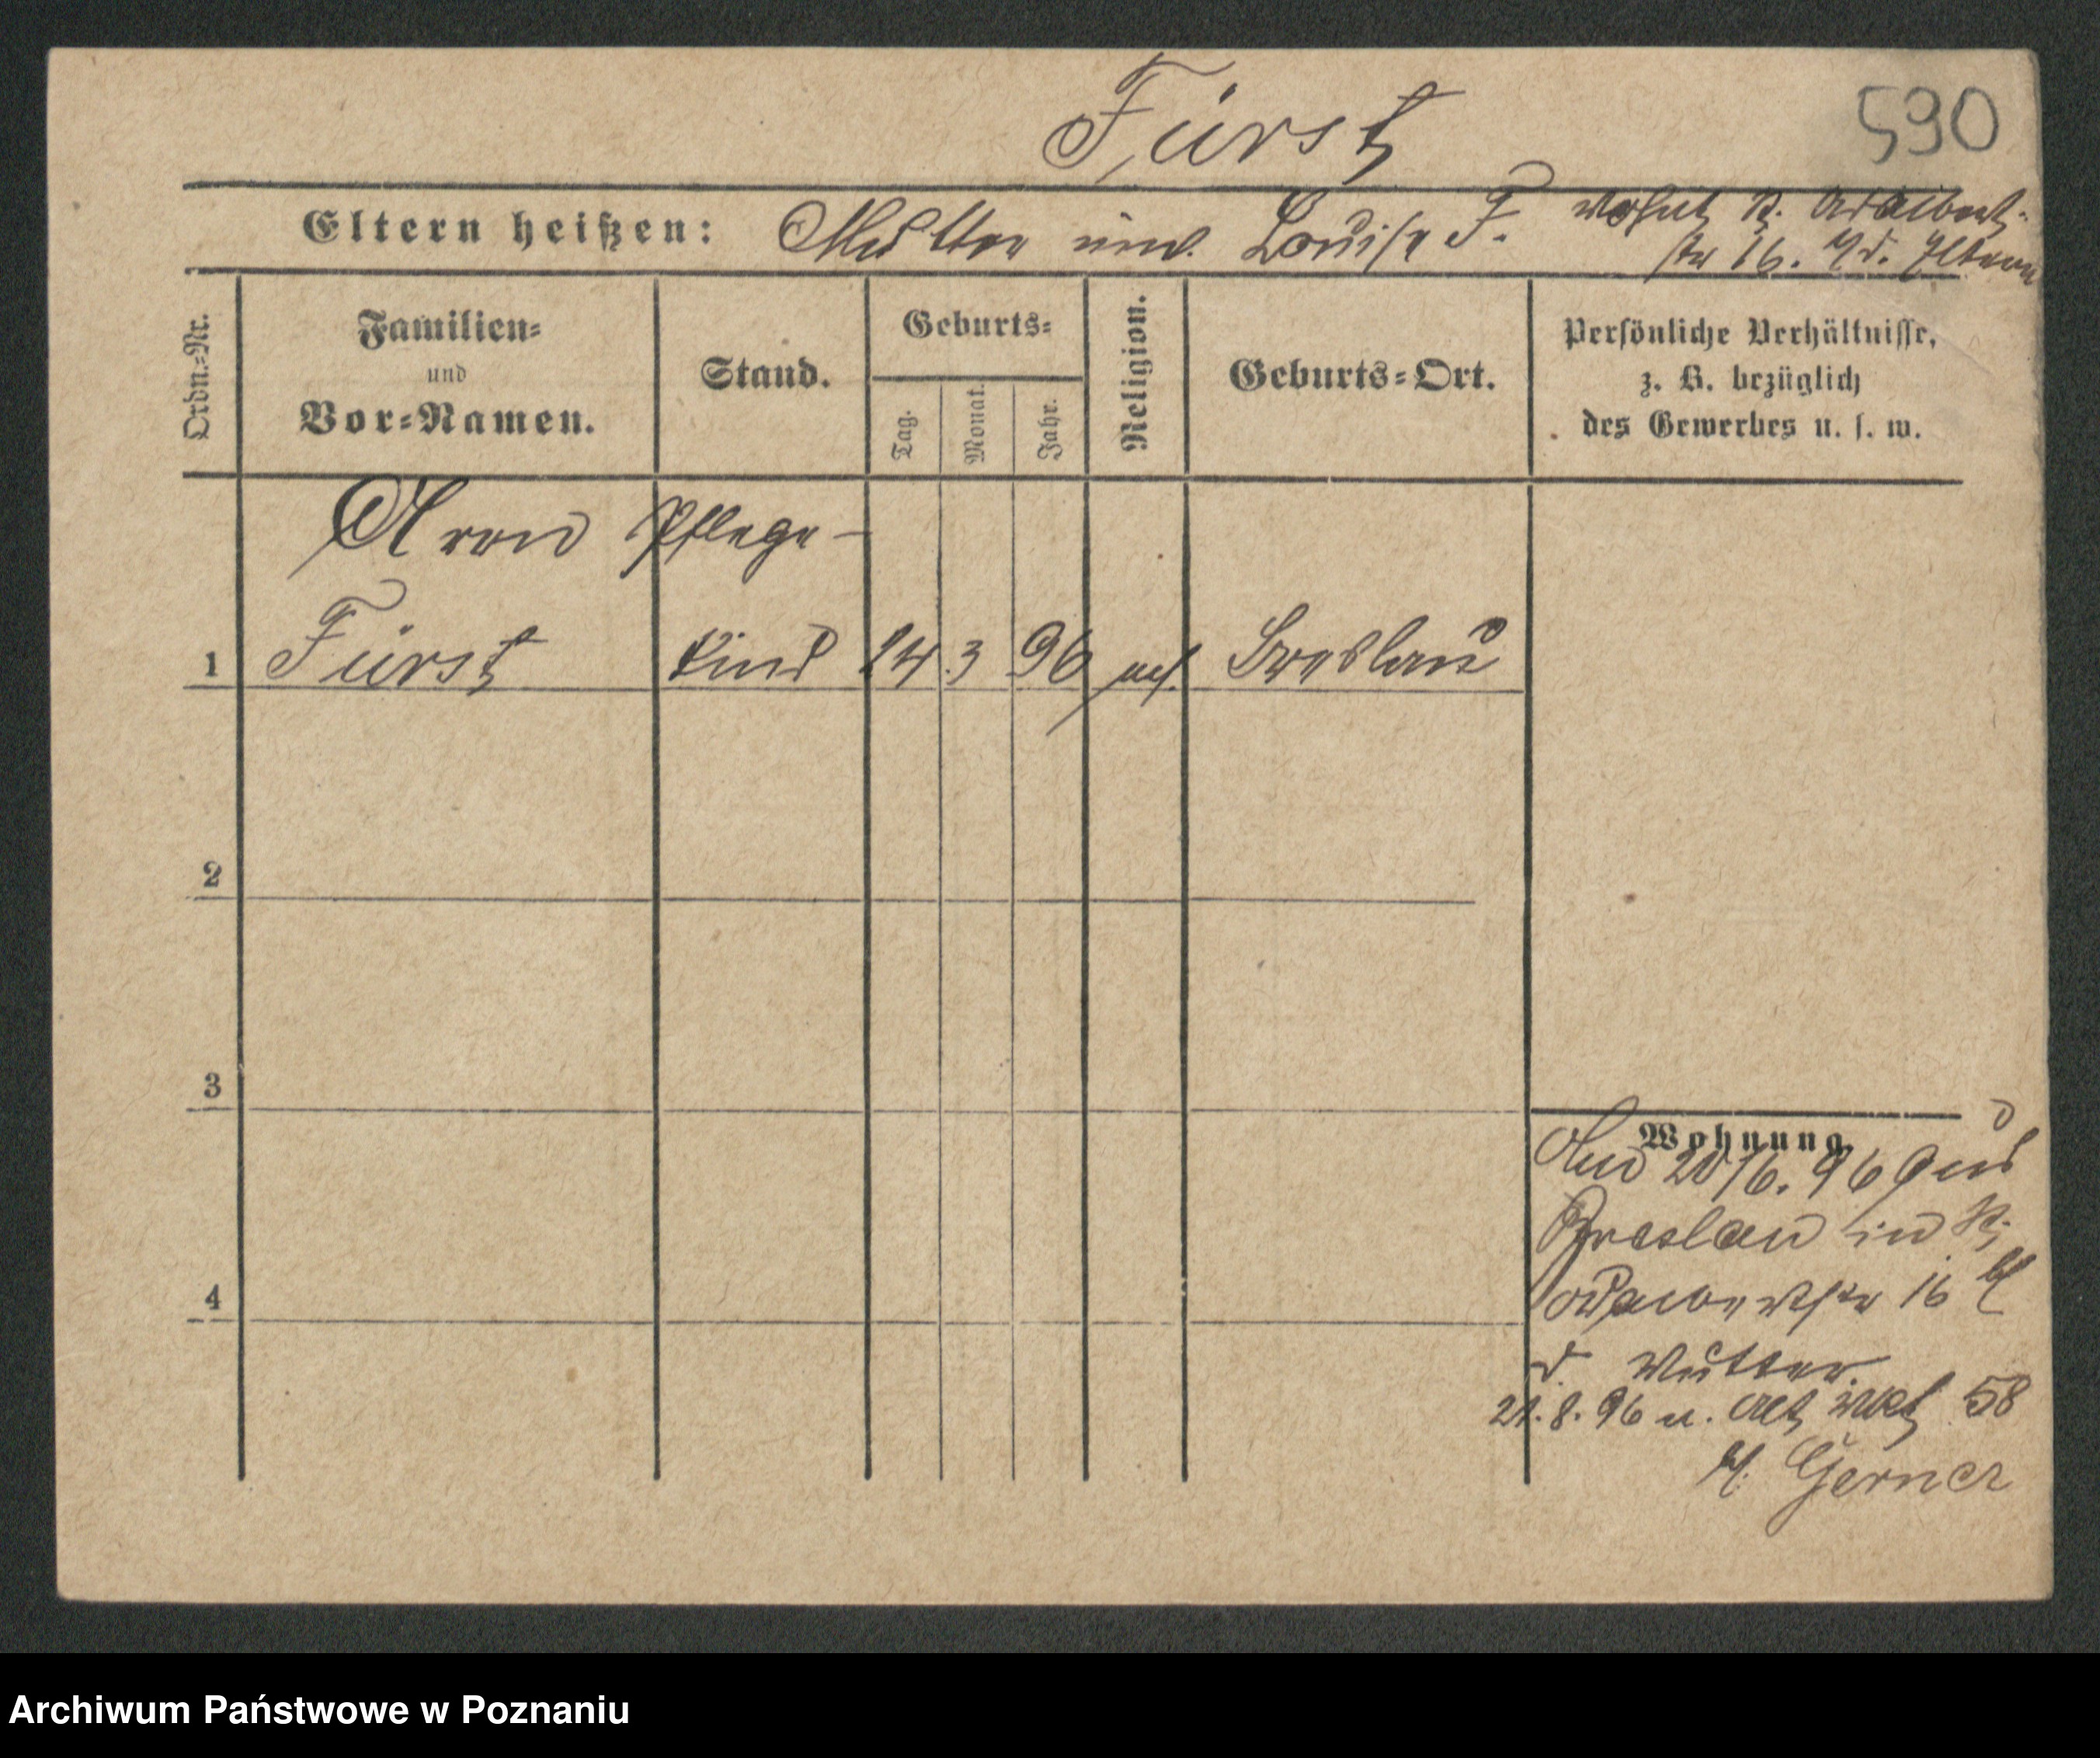 Fürst
590
Eltern heißen: Mutter unv. Louise F. wohnt St. Adalbert-
str 16. b/d. Eltern
Ordn.-Nr.
Familien-
und
Vor-Namen.
Stand.
Geburts-
Tag.
Monat.
Jahr.
Religion.
Geburts-Ort.
Persönliche Verhältnisse,
z. B. bezüglich
des Gewerbes u. s. w.
Aron Pflege-
1 Fürst Kind 24 3 96 Breslau
2
3
4
Wohnung
20/6. 96 aus
Breslau in St.
16 b/
d. Mutter
21.8.96 n. Alt Mkt 58
b/. Gerner
Archiwum Państwowe w Poznaniu